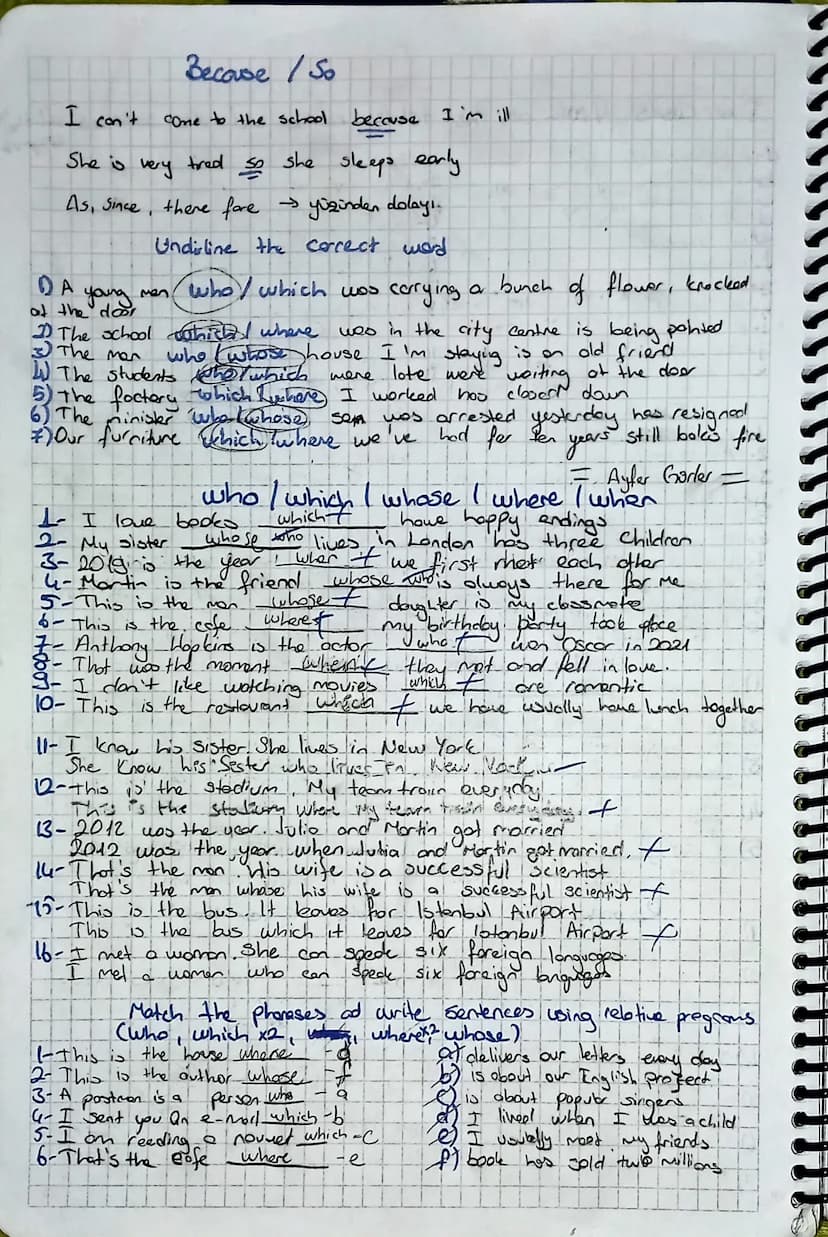 Because / So
I can't come to the school because I'm ill
She is very tred so she sleeps early
As, Since, there fore → yüzünden dolayı.
Undirline the correct word
1) A young man who / which was carrying a bunch of flower, knocked
at the door
2) The school which / where was in the city centre is being painted
3) The man who / whose house I'm staying is an old friend
4) The students who / which were late were waiting at the door
5) The factory which / where I worked has closed down
6) The minister who / whose son was arrested yesterday has resigned
7) Our furniture which / where we've had for ten years still looks fire
= Ayfer =
who / which / whose / where / when
1- I love books which + have happy endings
2- My sister whose who lives in London has three children
3- 2019 is the year when + we first met each other
4- Martin is the friend whose who is always there for me
5- This is the man whose + daughter is my classmate
6- This is the cafe where + my birthday party took place
7- Anthony Hopkins is the actor who + won Oscar in 2021
8- That was the moment when + they met and fell in love.
9- I don't like watching movies which + are romantic
10- This is the restaurant which + we have usually have lunch together
11- I know his sister. She lives in New York
She know his Sester who lives in New York
12- This is the stadium. My team train everyday
This is the stadium where my team train everyday. +
13- 2012 was the year. Julia and Martin got married
2012 was the year when Julia and Martin got married. +
14- That's the man. His wife is a successful scientist
That's the man whose his wife is a successful scientist +
15- This is the bus. It leaves for Istanbul Airport
This is the bus which it leaves for Istanbul Airport +
16- I met a woman. She can speak six foreign languages.
I met a woman who can speak six foreign languages
Match the phrases ad write sentences using relative pregrons
(Who, which x2, where x2, whose)
1- This is the house where -d
a) delivers our letters every day
2- This is the author whose -f
b) is about our English project
3- A postman is a person who -a
c) is about popular singers
4- I sent you an e-mail which -b
d) I lived when I was a child
5- I am reading a which -c
e) I usually meet my friends
6- That's the cafe where -e
f) book has sold two millions